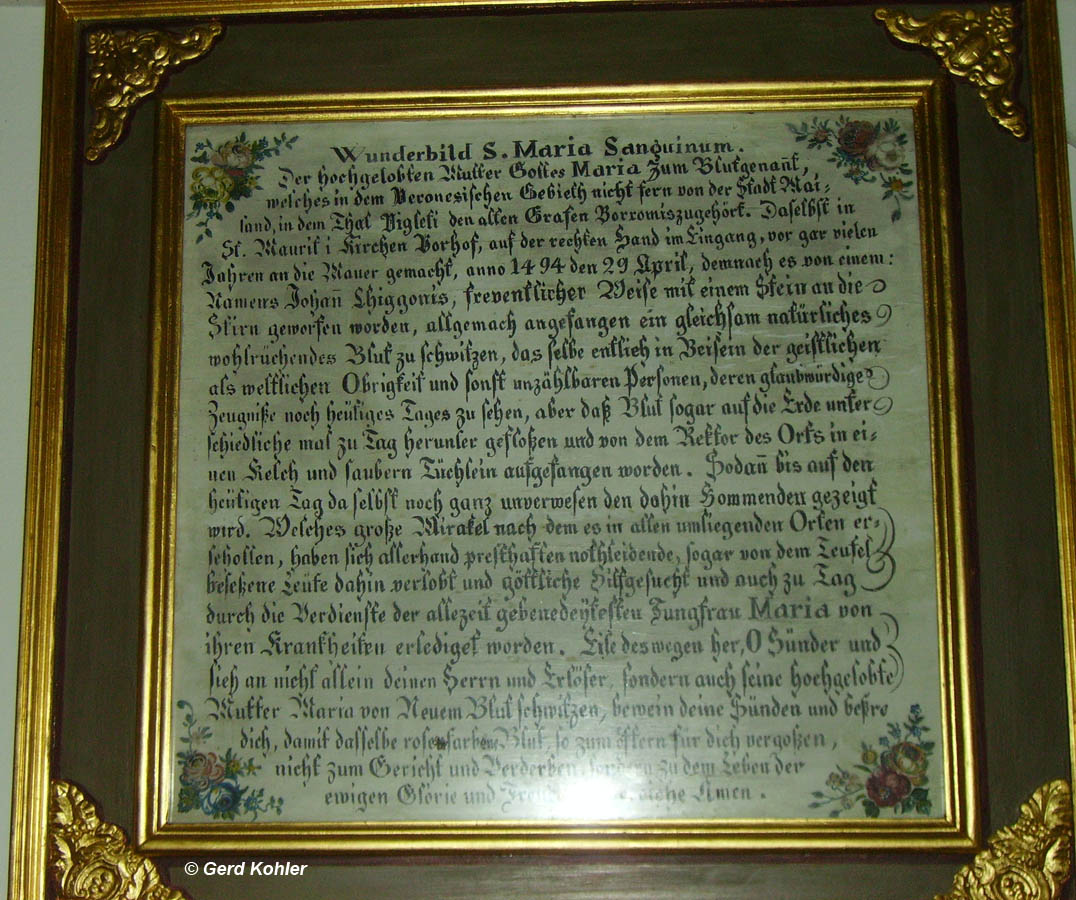 Wunderbild S. Maria Sanguinum.
Der hochgelobten Mutter Gottes Maria zum Blutgenañt,
welches in dem Veronesischen Gebieth nicht fern von der Stadt Mai-
land, in dem Thal Vigleti den alten Grafen Borromiszugehört. Daselbst in
St. Maurit i Kirchen Vorhof, auf der rechten Hand im Eingang, vor gar vielen
Jahren an die Mauer gemacht, anno 1494 den 29 April, demnach es von einem:
Namens Johañ Chiggonis, freventlicher Weise mit einem Stein an die
Stirn geworfen worden, allgemach angefangen ein gleichsam natürliches
wohlrüchendes Blut zu schwitzen, das selbe entlich in Beisein der geistlichen
als weltlichen Obrigkeit und sonst unzählbaren Personen, deren glaubwürdige
Zeugniße noch heütiges Tages zu sehen, aber daß Blut sogar auf die Erde unter
schiedliche mal zu Tag herunter gefloßen und von dem Rektor des Orts in ei-
nen Kelch und saubern Tüchlein aufgefangen worden. Sodañ bis auf den
heütigen Tag da selbst noch ganz unverwesen den dahin Kommenden gezeigt
wird. Welches große Mirakel nach dem es in allen umliegenden Orten er-
schollen, haben sich allerhand presthaften nothleidende, sogar von dem Teufel
beseßene Leüte dahin verlobt und göttliche Hilfgesucht und auch zu Tag
durch die Verdienste der allezeit gebenedeytesten Jungfrau Maria von
ihren Krankheiten erlediget worden. Eile deswegen her, O Sünder und
sieh an nicht allein deinen Herrn und Erlöser, sondern auch seine hochgelobte
Mutter Maria von Neuem Blut schwitzen, bewein deine Sünden und beßre
dich, damit dasselbe rosenfarbene Blut, so zum öftern für dich vergoßen,
nicht zum Gericht und Verderben sondern zu dem Leben der
ewigen Glorie und Amen.
© Gerd Kohler